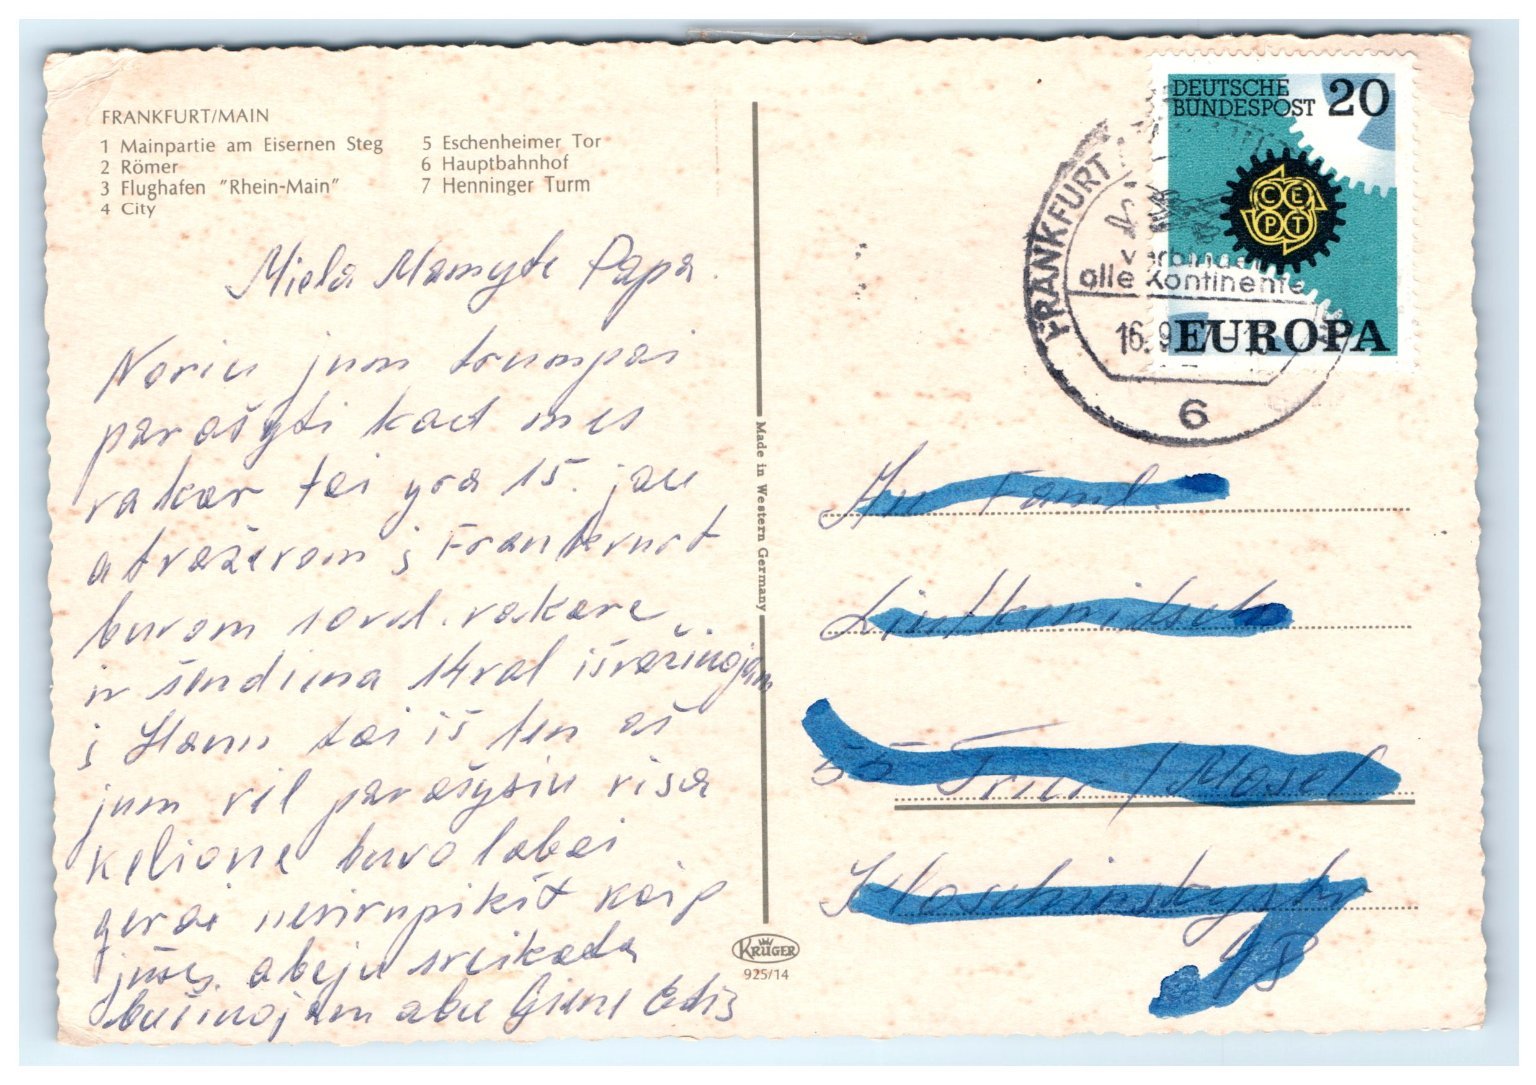 FRANKFURT/MAIN
1 Mainpartie am Eisernen Steg
2 Römer
3 Flughafen "Rhein-Main"
4 City
5 Eschenheimer Tor
6 Hauptbahnhof
7 Henninger Turm
Miela Mamyte Papa.
Noriu jum trumpai
parašyti kad mes
vakar tai yra 15. jau
atvažavom į Frankfurt
buvom 10val. vakare
ir šendiena 14val išvažinojam
į Hanu tai iš ten aš
jum vėl parašysiu visa
kelione buvo labai
gerai nesirupikit kaip
abeju sveikada
bučinojam abu
Made in Western Germany
KRÜGER
925/14
DEUTSCHE
BUNDESPOST 20
CEPT
EUROPA
FRANKFURT
verbindet
alle Kontinente
16.9
6
An Famil.
55 Trier/Mosel
18